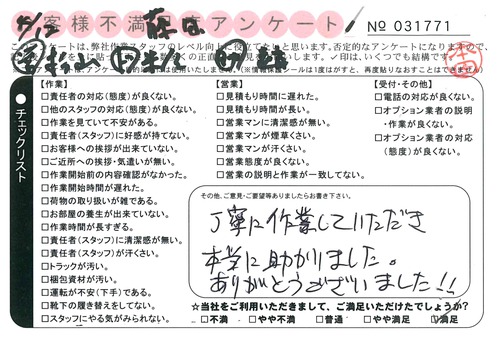 お客様不満足度アンケート
№ 031771
このアンケートは、弊社作業スタッフのレベル向上に役立てたいと思います。否定的なアンケートになりますので、
✓印は、いくつでも結構です。
【作業】
□責任者の対応(態度)が良くない。
□他のスタッフの対応(態度)が良くない。
□作業を見ていて不安がある。
□責任者(スタッフ)に好感が持てない。
□お客様への挨拶が出来ていない。
□ご近所への挨拶・気遣いが無い。
□作業開始前の内容確認がなかった。
□作業開始時間が遅れた。
□荷物の取り扱いが雑である。
□お部屋の養生が出来ていない。
□作業時間が長すぎる。
□責任者(スタッフ)に清潔感が無い。
□責任者(スタッフ)が汗くさい。
□トラックが汚い。
□梱包資材が汚い。
□運転が不安(下手)である。
□靴下の履き替えをしてない。
□スタッフにやる気がみられない。
【営業】
□見積もり時間に遅れた。
□見積もり時間が長い。
□営業マンに清潔感が無い。
□営業マンが煙草くさい。
□営業マンが汗くさい。
□営業態度が良くない。
□営業の説明と作業が一致してない。
【受付・その他】
□電話の対応が良くない。
□オプション業者の説明
・作業が良くない。
□オプション業者の対応
(態度)が良くない。
チェックリスト
その他、ご意見・ご要望等ありましたらお書き下さい。
丁寧に作業していただき
本当に助かりました。
ありがとうございました!!
☆当社をご利用いただきまして、ご満足いただけたでしょうか?
□不満 □やや不満 □普通 □やや満足 □満足